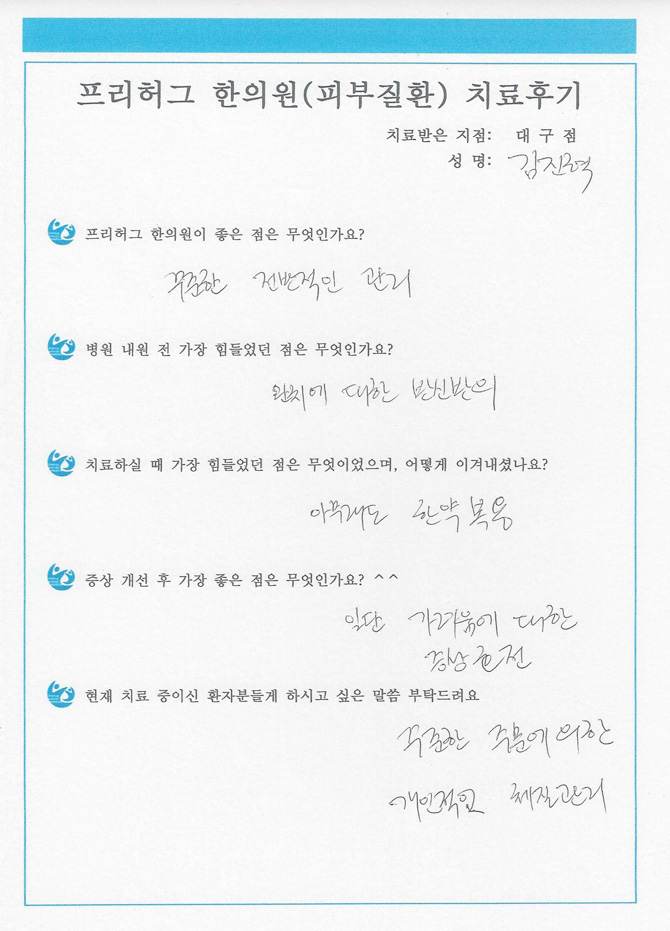 프리허그 한의원(피부질환) 치료후기
치료받은 지점: 대 구 점
성 명: 김진혁
프리허그 한의원이 좋은 점은 무엇인가요?
꾸준한 전반적인 관리
병원 내원 전 가장 힘들었던 점은 무엇인가요?
완치에 대한 반신반의
치료하실 때 가장 힘들었던 점은 무엇이었으며, 어떻게 이겨내셨나요?
아무래도 한약 복용
증상 개선 후 가장 좋은 점은 무엇인가요? ^ ^
일단 가려움에 대한
증상호전
현재 치료 중이신 환자분들게 하시고 싶은 말씀 부탁드려요
꾸준한 주문에 의한
개인적인 체질관리